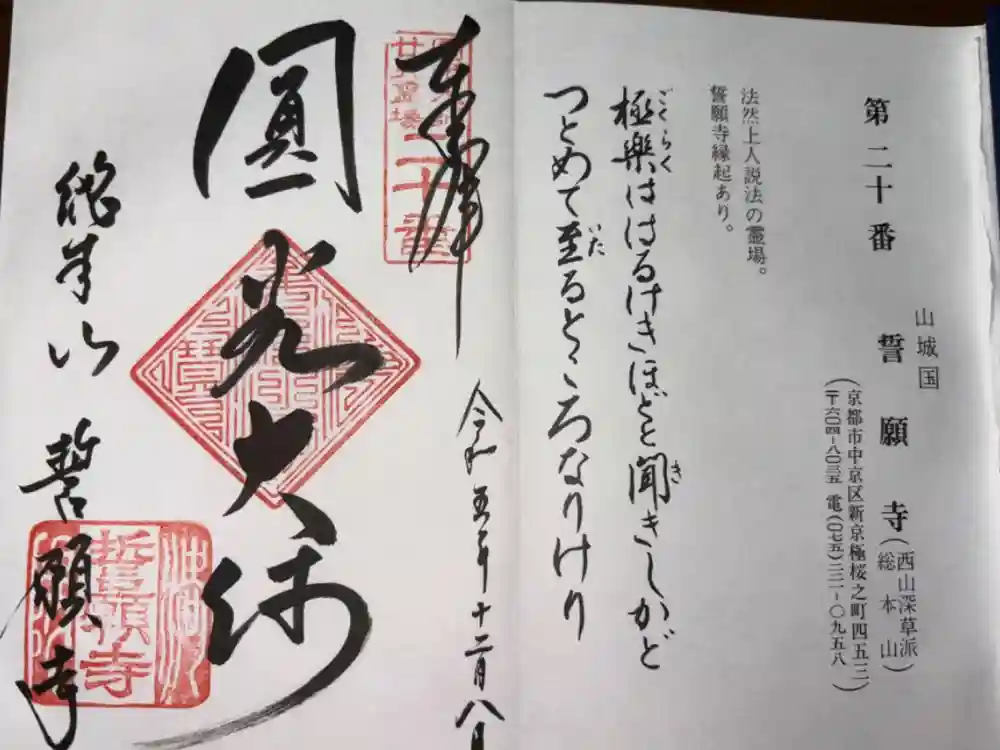 第二十番 誓願寺(西山深草派 総本山)
山城国
(京都市中京区新京極桜之町四五三
〒六〇四-八〇三五 電(〇七五)二二一-〇九五八)
法然上人説法の霊場。
誓願寺縁起あり。
極楽ははるけきほどと聞きしかど
ごくらく
き
つとめて至るところなりけり
いた
奉拝
二十番
令和五年十二月八日
圓光大師
総本山 誓願寺
誓願寺